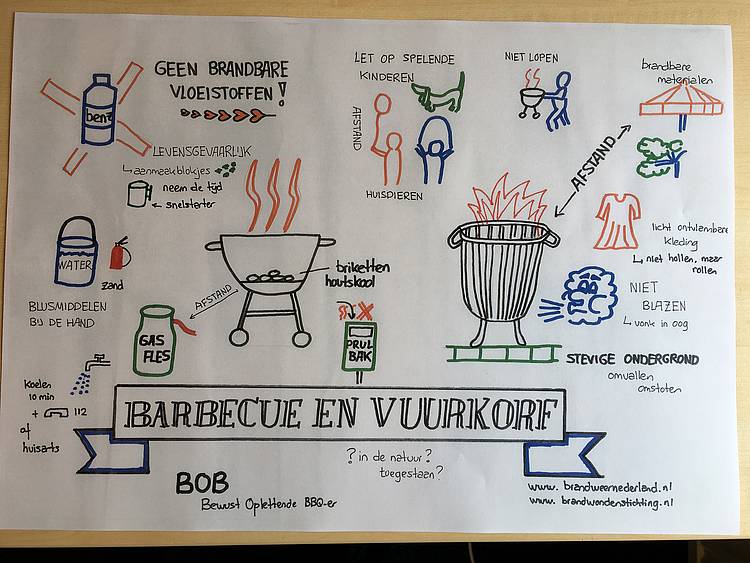 GEEN BRANDBARE
VLOEISTOFFEN!
benz
LEVENSGEVAARLIJK
aanmaakblokjes
neem de tijd
snelstarter
LET OP SPELENDE
KINDEREN
AFSTAND
HUISDIEREN
NIET LOPEN
brandbare
materialen
AFSTAND
licht ontvlambare
kleding
niet hollen, maar
rollen
NIET
BLAZEN
vonk in oog
WATER
zand
BLUSMIDDELEN
BIJ DE HAND
briketten
houtskool
AFSTAND
GAS
FLES
PRUL
BAK
STEVIGE ONDERGROND
omvallen
omstoten
Koelen
10 min
+ 112
of
huisarts
BARBECUE EN VUURKORF
BOB
Bewust Oplettende BBQ-er
? in de natuur?
toegestaan?
www. brandweernederland.nl
www. brandwondenstichting.nl